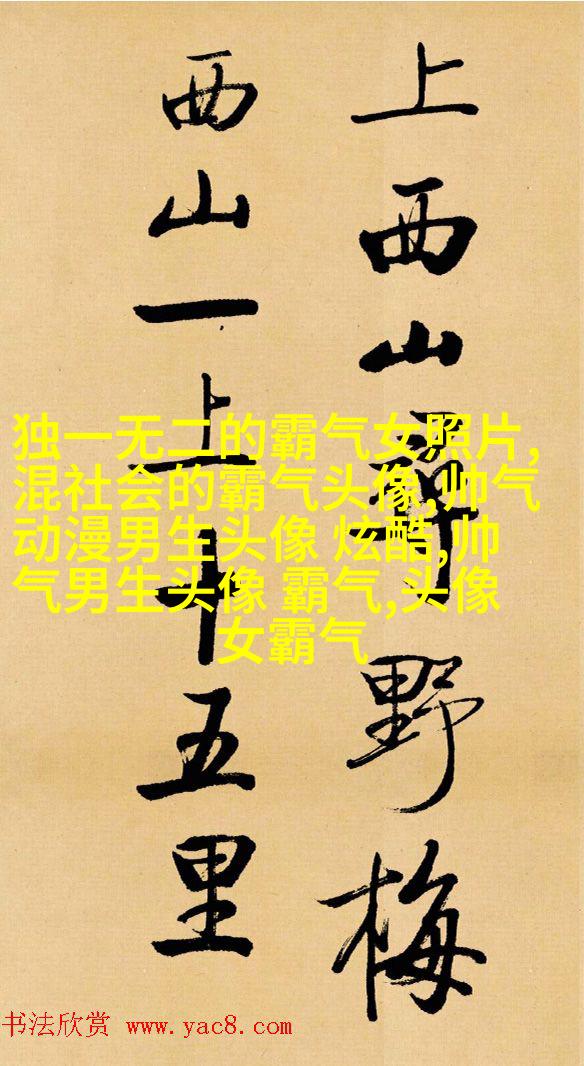 上西山野梅
西山一上十五里
独一无二的霸气女照片,
混社会的霸气头像,帅气
动漫男生头像 炫酷,帅
气男生头像 霸气,头像
女霸气
书法欣赏 www.yac8.com